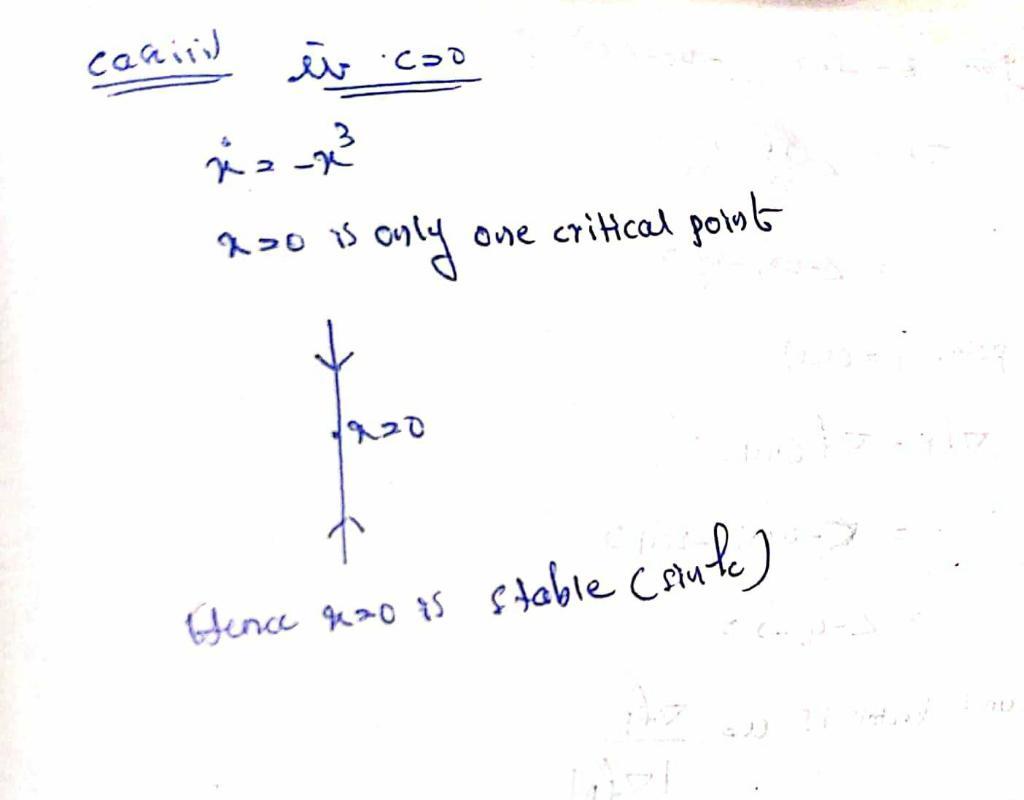 case iii) if c=0
ẋ = -x³
x=0 is only one critical point
x=0
Hence x=0 is stable (sink)